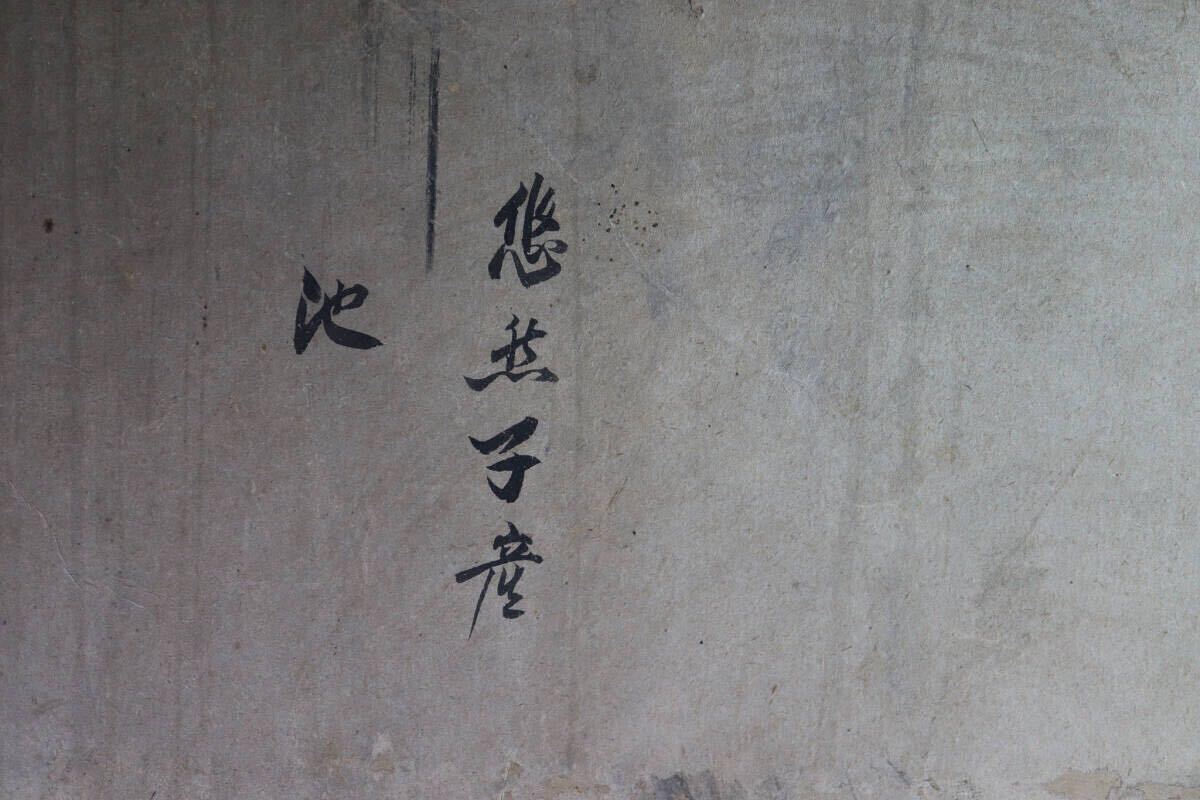 悠然子産
池